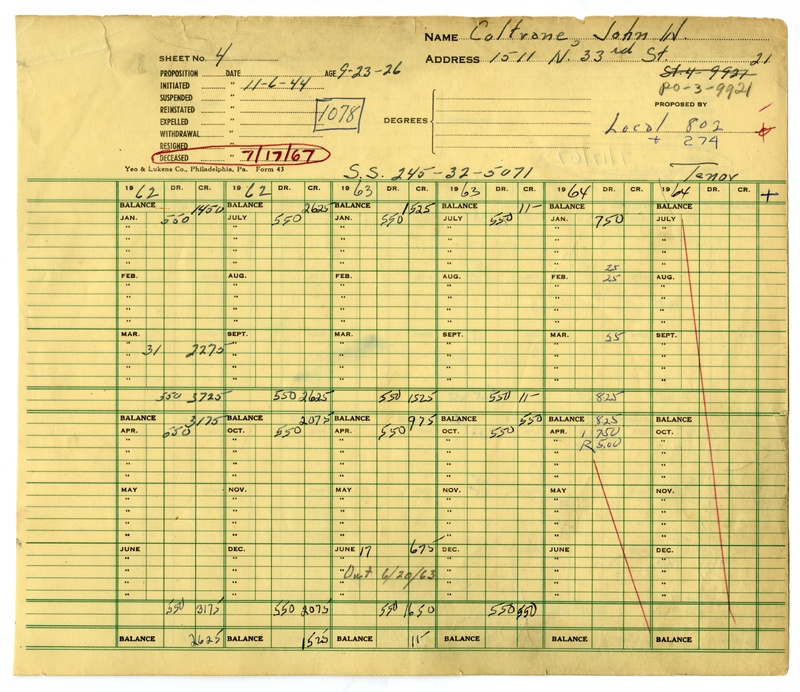 NAME Coltrane, John W.
SHEET No. 4
ADDRESS 1511 N. 33rd St. 21
PROPOSITION DATE AGE 9-23-26
St. 4-9921
INITIATED " 11-6-44
PO-3-9921
SUSPENDED "
REINSTATED "
1078
PROPOSED BY
EXPELLED "
DEGREES
Local 802
WITHDRAWAL "
+ 274
RESIGNED "
DECEASED " 7/17/67
Yeo & Lukens Co., Philadelphia, Pa. Form 43
S.S. 245-32-5071
Tenor
1962 DR. CR. 1962 DR. CR. 1963 DR. CR. 1963 DR. CR. 1964 DR. CR. 1964 DR. CR. +
BALANCE 1450 BALANCE 2625 BALANCE 1525 BALANCE 11- BALANCE BALANCE
JAN. 550 JULY 550 JAN. 550 JULY 550 JAN. 750 JULY
25
FEB. AUG. FEB. AUG. FEB. 25 AUG.
MAR. SEPT. MAR. SEPT. MAR. 55 SEPT.
" 31 2275
550 3725 550 2625 550 1525 550 11- 825
BALANCE 3175 BALANCE 2075 BALANCE 975 BALANCE 550 BALANCE 825 BALANCE
APR. 550 OCT. 550 APR. 550 OCT. 550 APR. 1 750 OCT.
R 5.00
MAY NOV. MAY NOV. MAY NOV.
JUNE DEC. JUNE 17 675 DEC. JUNE DEC.
6/20/63
550 3175 550 2075 550 1650 550 550
BALANCE 2625 BALANCE 1525 BALANCE 11- BALANCE BALANCE BALANCE